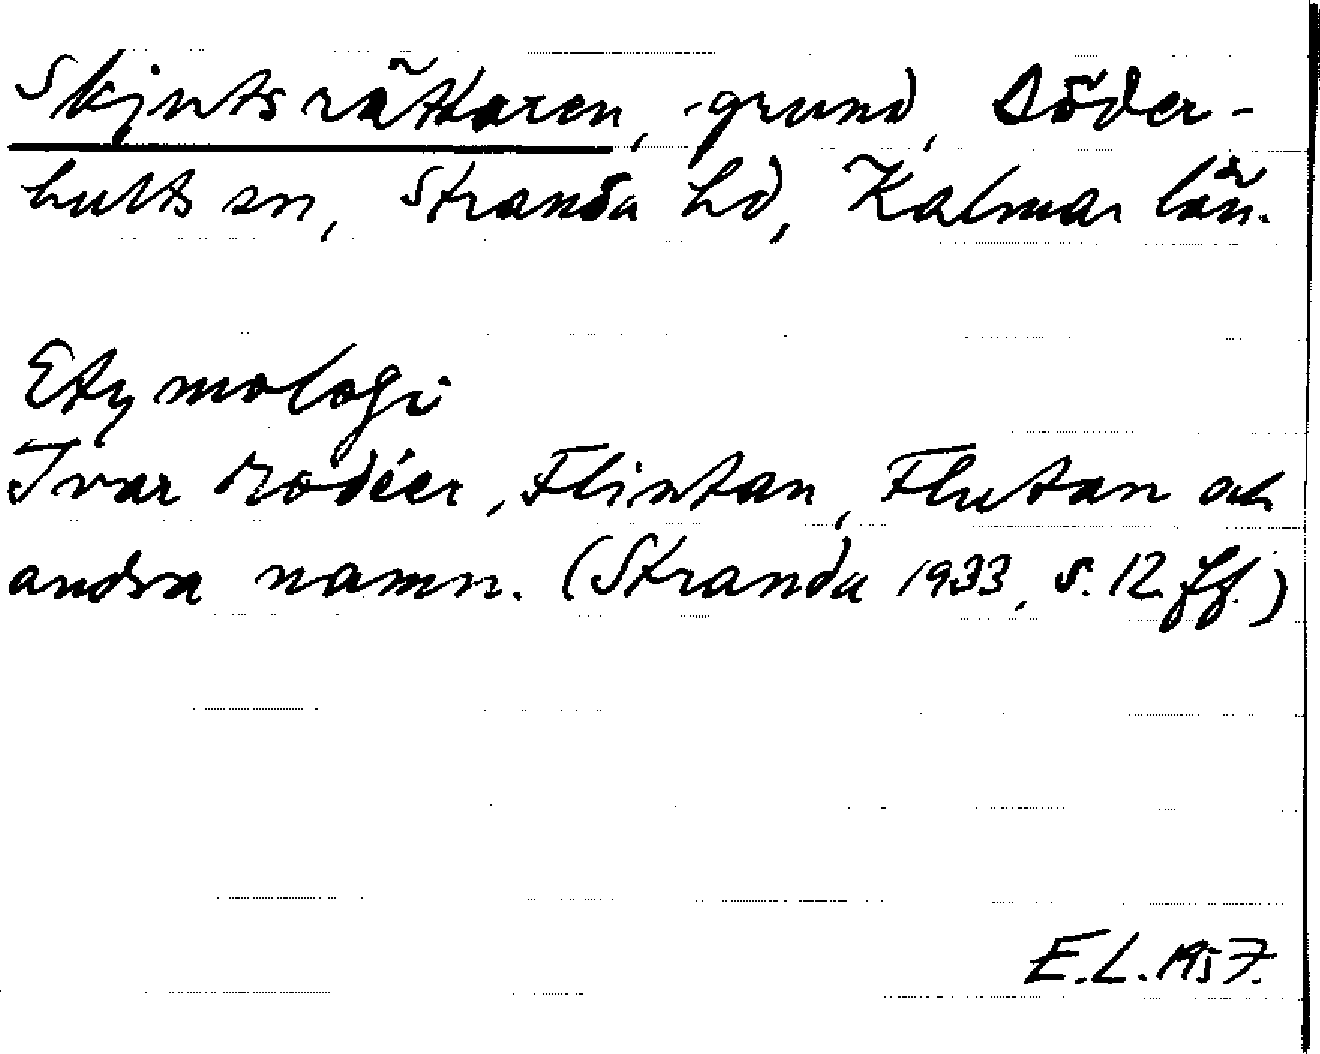 Skjutsrättaren, grund, Döder-
hults sn, Stranda hd, Kalmar län.
Etymologi
Ivar Modéer, Flintan, Flutan och
andra namn. (Stranda 1933, s. 12. ff.)
E.L. 1957.